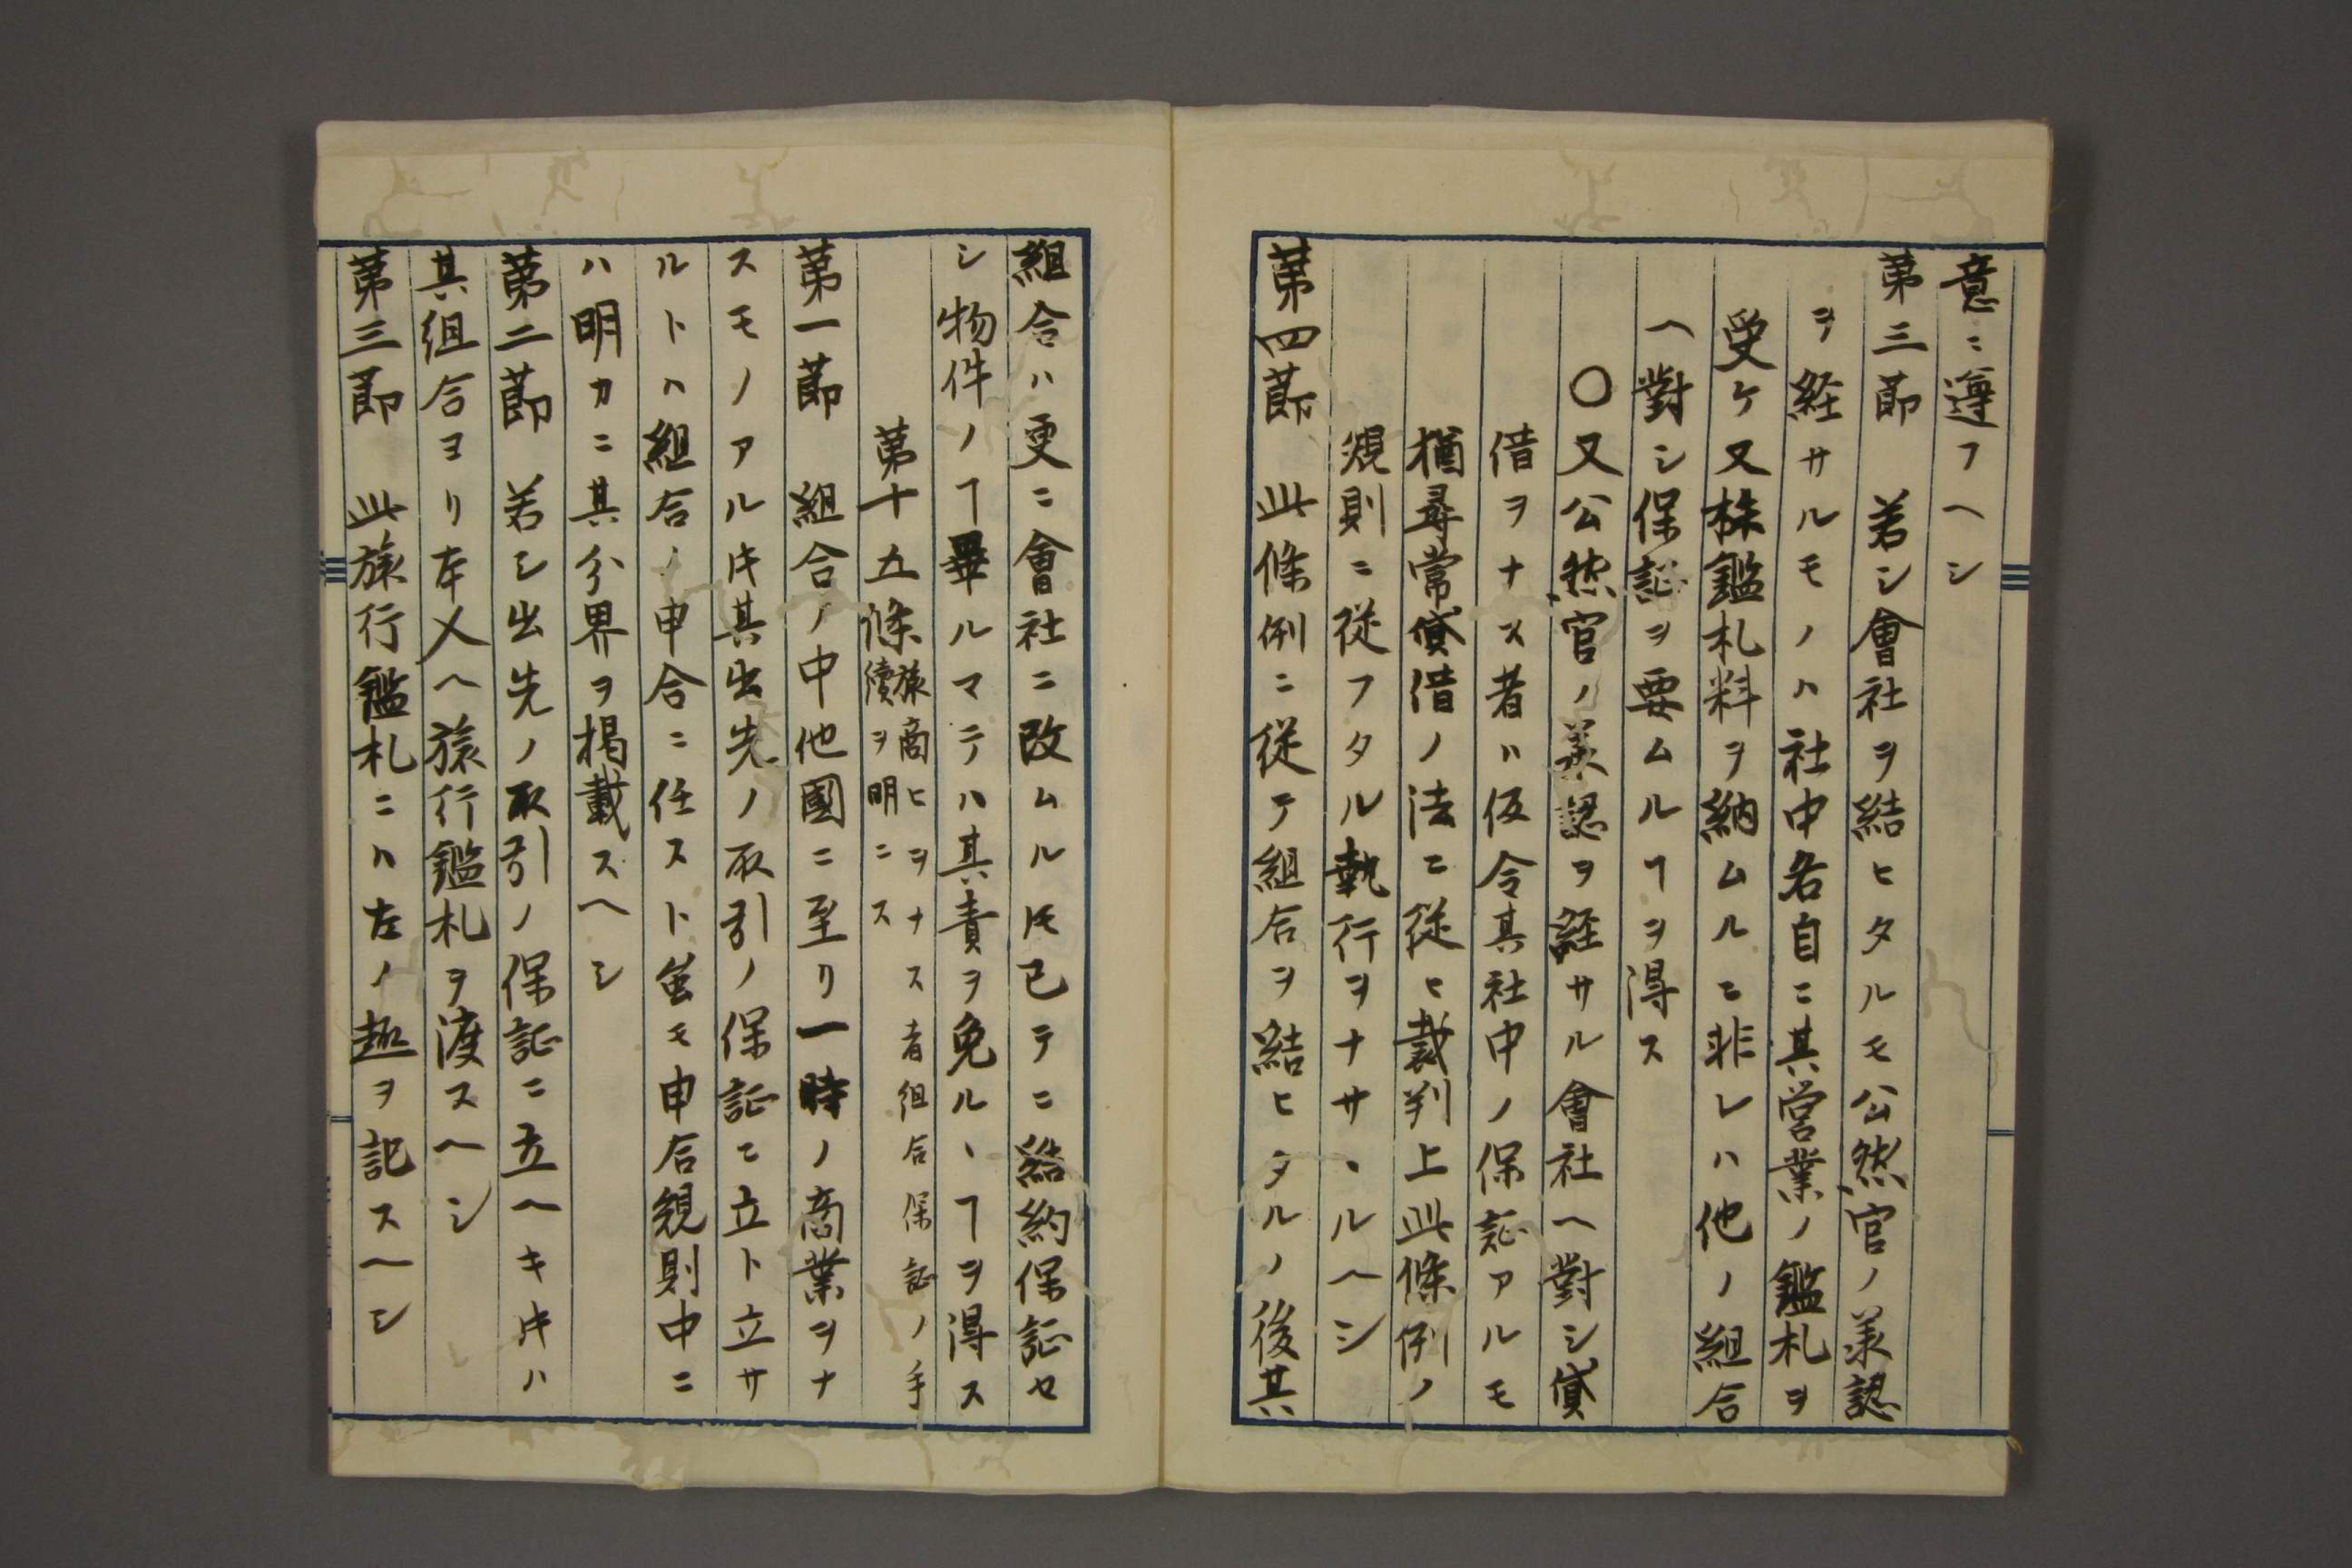 意ニ遵フヘシ
第三節　若シ會社ヲ結ヒタルモ公然官ノ承認
ヲ経サルモノハ社中各自ニ其営業ノ鑑札ヲ
受ケ又株鑑札料ヲ納ムルニ非レハ他ノ組合
ヘ對シ保証ヲ要ムルヿヲ得ス
〇又公然官ノ承認ヲ経サル會社ヘ對シ貸
借ヲナス者ハ仮令其社中ノ保証アルモ
猶尋常貸借ノ法ニ従ヒ裁判上此條例ノ
規則ニ従フタル執行ヲナサヽルヘシ
第四節　此條例ニ従テ組合ヲ結ヒタルノ後其
組合ハ更ニ會社ニ改ムルㇳモ已テニ結約保証セ
シ物件ノヿ畢ルマテハ其責ヲ免ルヽヿヲ得ス
第十五條 旅商ヒヲナス者組合保証ノ手
續ヲ明ニス
第一節　組合ノ中他國ニ至リ一時ノ商業ヲナ
スモノアルキ其出先ノ取引ノ保証ニ立ト立サ
ルトハ組合ノ申合ニ任スト虽モ申合規則中ニ
ハ明カニ其分界ヲ掲載スヘシ
第二節　若シ出先ノ取引ノ保証ニ立ヘキキハ
其組合ヨリ本人ヘ旅行鑑札ヲ渡スヘシ
第三節　此旅行鑑札ニハ左ノ趣ヲ記スヘシ